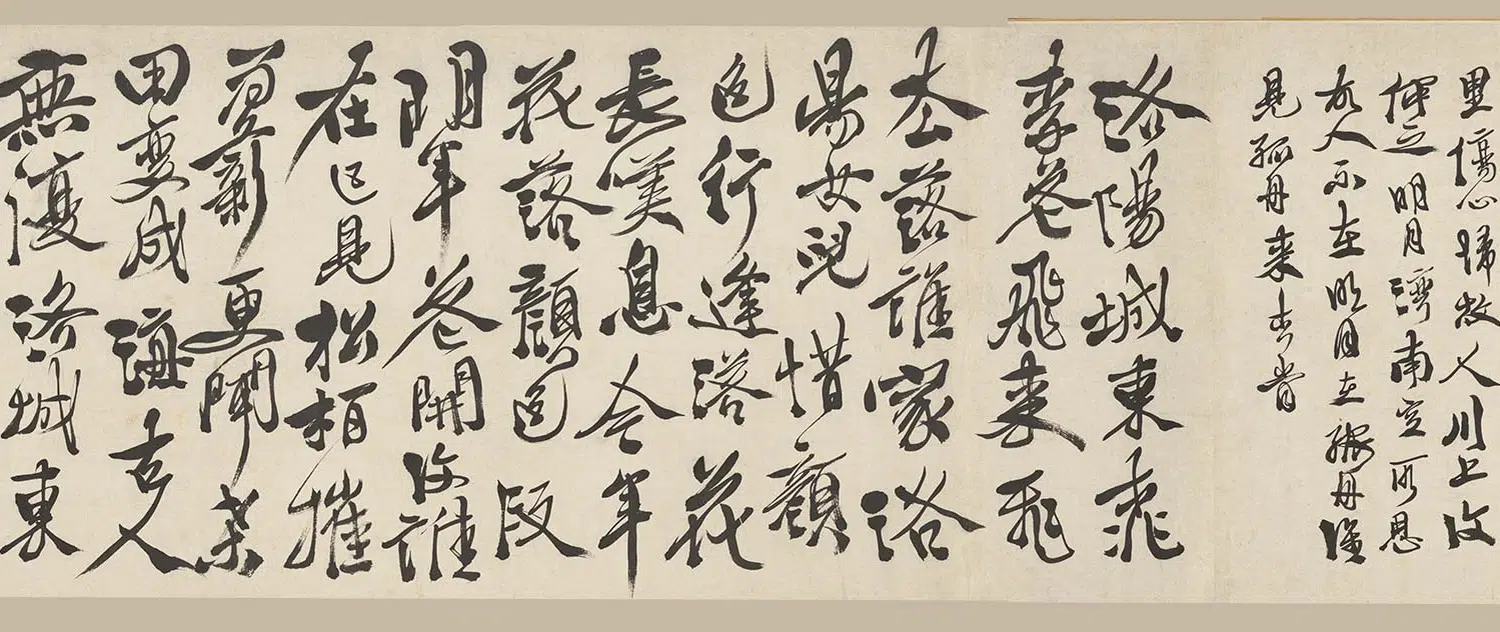 里傷心歸故人川上復
何之明月灣南空所思
故人不在明月在孤舟誰
見孤舟來去時
洛陽城東桃
李花飛來飛
去落誰家洛
陽女兒惜顏
色行逢落花
長嘆息今年
花落顏色改
明年花開復誰
在已見松柏摧
為薪更聞桑
田變成海古人
無復洛城東